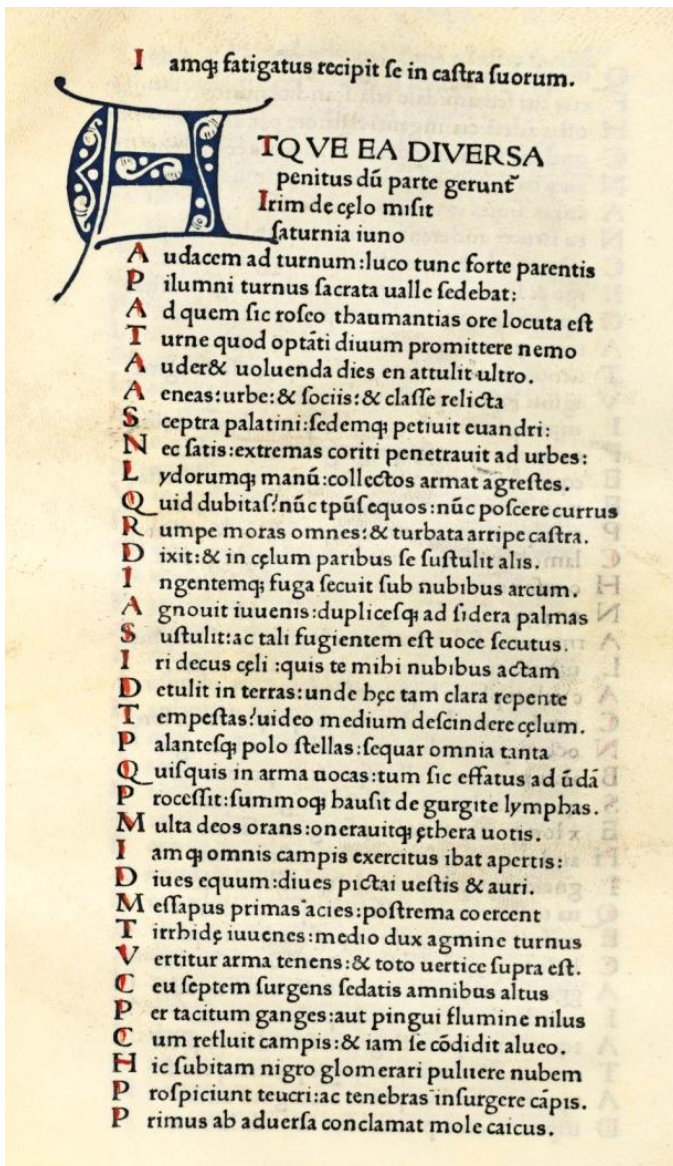 I amq; fatigatus recipit ſe in caſtra ſuorum.
ATQVE EA DIVERSA
penitus dū parte gerunt̃
Irim de cęlo miſit
ſaturnia iuno
A udacem ad turnum:luco tunc forte parentis
P ilumni turnus ſacrata ualle ſedebat:
A d quem ſic roſeo thaumantias ore locuta eſt
T urne quod optāti diuum promittere nemo
A uder& uoluenda dies en attulit ultro.
A eneas:urbe:& ſociis:& claſſe relicta
S ceptra palatini:ſedemq; petiuit euandri:
N ec ſatis:extremas coriti penetrauit ad urbes:
L ydorumq; manū:collectos armat agreſtes.
Q uid dubitaſ?nūc tpūſ equos:nūc poſcere currus
R umpe moras omnes:& turbata arripe caſtra.
D ixit:& in cęlum paribus ſe ſuſtulit alis.
I ngentemq; fuga ſecuit ſub nubibus arcum.
A gnouit iuuenis:dupliceſq; ad ſidera palmas
S uſtulit:ac tali fugientem eſt uoce ſecutus.
I ri decus cęli :quis te mihi nubibus actam
D etulit in terras:unde hęc tam clara repente
T empeſtas?uideo medium deſcindere cęlum.
P alanteſq; polo ſtellas:ſequar omnia tanta
Q uiſquis in arma uocas:tum ſic effatus ad ūdā
P roceſſit:ſummoq; hauſit de gurgite lymphas.
M ulta deos orans:onerauitq; ęthera uotis.
I amq; omnis campis exercitus ibat apertis:
D iues equum:diues pictai ueſtis & auri.
M eſſapus primas acies:poſtrema coercent
T irrhidę iuuenes:medio dux agmine turnus
V ertitur arma tenens:& toto uertice ſupra eſt.
C eu ſeptem ſurgens ſedatis amnibus altus
P er tacitum ganges:aut pingui flumine nilus
C um refluit campis:& iam ſe cōdidit alueo.
H ic ſubitam nigro glomerari puluere nubem
P roſpiciunt teucri:ac tenebras inſurgere cāpis.
P rimus ab aduerſa conclamat mole caicus.